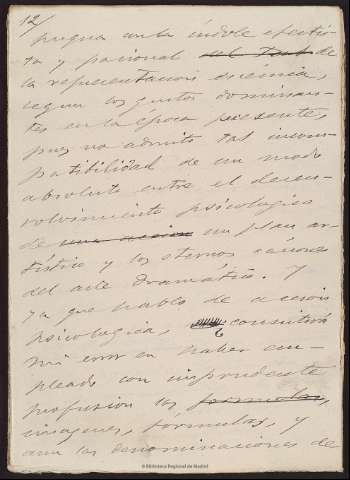 12/
pugna con la índole efectis-
ta y pasional del Teatro de
la representacion escenica,
segun los gustos dominan-
tes en la época presente,
pues no admito tal incom-
patibilidad de un modo
absoluto entre el desen-
volvimiento psicologico
de una accion un plan ar-
tístico y los eternos cánones
del arte dramático. Y
ya que hablo de accion
psicologica,
mi error en haber em-
pleado con imprudente
profusion las formulas,
imagenes, fórmulas, y
aun las denominaciones de
© Biblioteca Regional de Madrid